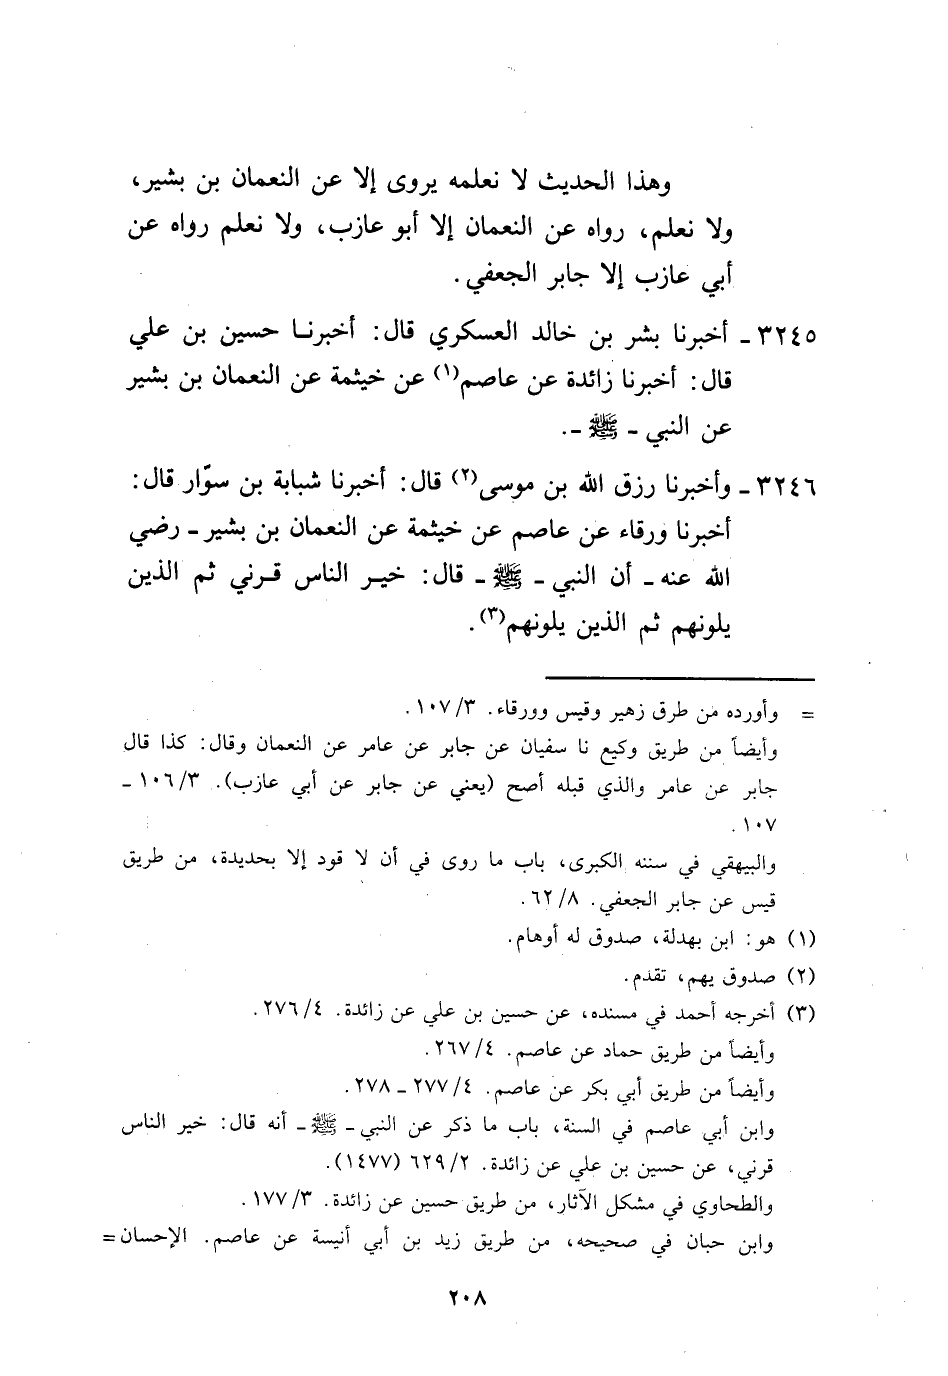 وهذا الحديث لا نعلمه يروى إلا عن النعمان بن بشير،
ولا نعلم، رواه عن النعمان إلا أبو عازب، ولا نعلم رواه عن
أبي عازب إلا جابر الجعفي.
٣٢٤٥ ـ أخبرنا بشر بن خالد العسكري قال: أخبرنا حسين بن علي
قال: أخبرنا زائدة عن عاصم(١) عن خيثمة عن النعمان بن بشير
عن النبي ـ ﷺ ـ.
٣٢٤٦ ـ وأخبرنا رزق الله بن موسى(٢) قال: أخبرنا شبابة بن سوّار قال:
أخبرنا ورقاء عن عاصم عن خيثمة عن النعمان بن بشير ـ رضي
الله عنه ـ أن النبي ـ ﷺ ـ قال: خير الناس قرني ثم الذين
يلونهم ثم الذين يلونهم(٣).
= وأورده من طرق زهير وقيس وورقاء. ٣/ ١٠٧.
وأيضاً من طريق وكيع نا سفيان عن جابر عن عامر عن النعمان وقال: كذا قال
جابر عن عامر والذي قبله أصح (يعني عن جابر عن أبي عازب). ٣/ ١٠٦ ـ
١٠٧.
والبيهقي في سننه الكبرى، باب ما روى في أن لا قود إلا بحديدة، من طريق
قيس عن جابر الجعفي. ٨/ ٦٢.
(١) هو: ابن بهدلة، صدوق له أوهام.
(٢) صدوق يهم، تقدم.
(٣) أخرجه أحمد في مسنده، عن حسين بن علي عن زائدة. ٤/ ٢٧٦.
وأيضاً من طريق حماد عن عاصم. ٤/ ٢٦٧.
وأيضاً من طريق أبي بكر عن عاصم. ٤/ ٢٧٧ ـ ٢٧٨.
وابن أبي عاصم في السنة، باب ما ذكر عن النبي ـ ﷺ ـ أنه قال: خير الناس
قرني، عن حسين بن علي عن زائدة. ٢/ ٦٢٩ (١٤٧٧).
والطحاوي في مشكل الآثار، من طريق حسين عن زائدة. ٣/ ١٧٧.
وابن حبان في صحيحه، من طريق زيد بن أبي أنيسة عن عاصم. الإحسان =
٢٠٨